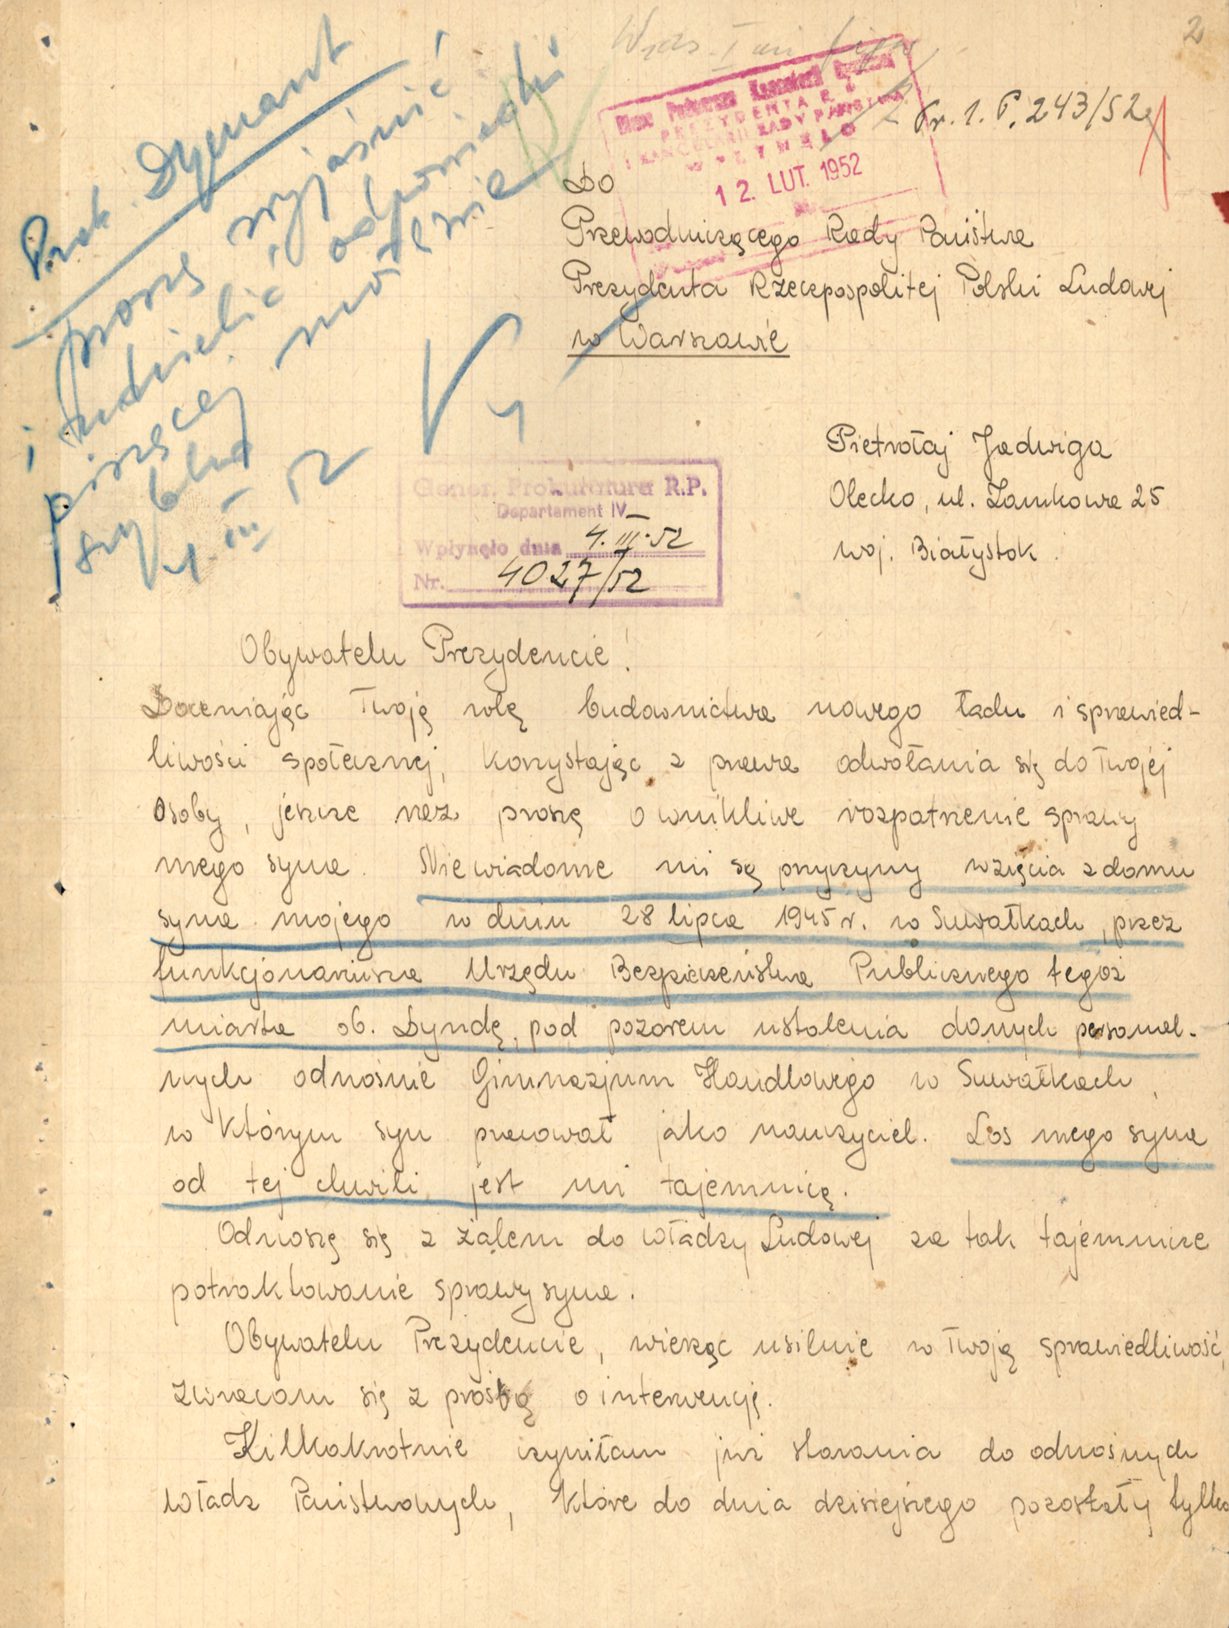 2
Pr. 1. P. 243/52
PREZYDENTA R.P.
I KANCELARII RADY PAŃSTWA
WPŁYNĘŁO
12. LUT. 1952
Prok. Dymant
proszę wyjaśnić
i udzielić odpowiedzi
piszącej możliwie
szybko
4 III 52
Do
Przewodniczącego Rady Państwa
Prezydenta Rzeczpospolitej Polski Ludowej
w Warszawie
Pietrołaj Jadwiga
Olecko, ul. Zamkowa 25
woj. Białystok.
Gener. Prokuratura R.P.
Departament IV
Wpłynęło dnia 4. III. 52
Nr. 4027/52
Obywatelu Prezydencie!
Doceniając Twoją rolę budownictwa nowego ładu i sprawied-
liwości społecznej, korzystając z prawa odwołania się do Twojej
Osoby, jeszcze raz proszę o wnikliwe rozpatrzenie sprawy
mego syna. Niewiadome mi są przyczyny wzięcia z domu
syna mojego w dniu 28 lipca 1945 r. w Suwałkach, przez
funkcjonariusza Urzędu Bezpieczeństwa Publicznego tegoż
miasta ob. Dyndę, pod pozorem ustalenia danych personal-
nych odnośnie Gimnazjum Handlowego w Suwałkach,
w którym syn pracował jako nauczyciel. Los mego syna
od tej chwili jest mi tajemnicą.
Odnoszę się z żalem do władzy Ludowej za tak tajemnicze
potraktowanie sprawy syna.
Obywatelu Prezydencie, wierząc usilnie w Twoją sprawiedliwość,
zwracam się z prośbą o interwencję.
Kilkakrotnie czyniłam już starania do odnośnych
Władz Państwowych, które do dnia dzisiejszego pozostały tylko